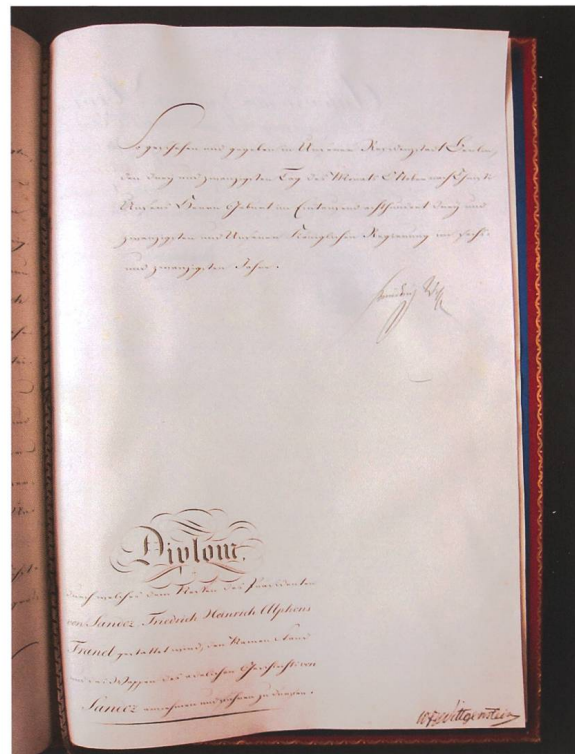 So geschehen und gegeben in Unserer Residenzstadt Berlin,
den drey und zwanzigsten Tag des Monats October nach Christi
Unsers Herrn Geburt im Eintausend achthundert drey und
zwanzigsten und Unserer Königlichen Regierung im sechs
und zwanzigsten Jahre.
Friedrich Wilhelm
Diplom,
durch welches dem Neffen des Präsidenten
von Sandoz Friedrich Heinrich Alphons
gestattet wird, den Namen Stand
und das Wappen des adelichen Geschlechts von
Sandoz annehmen und führen zu dürfen.
Wittgenstein